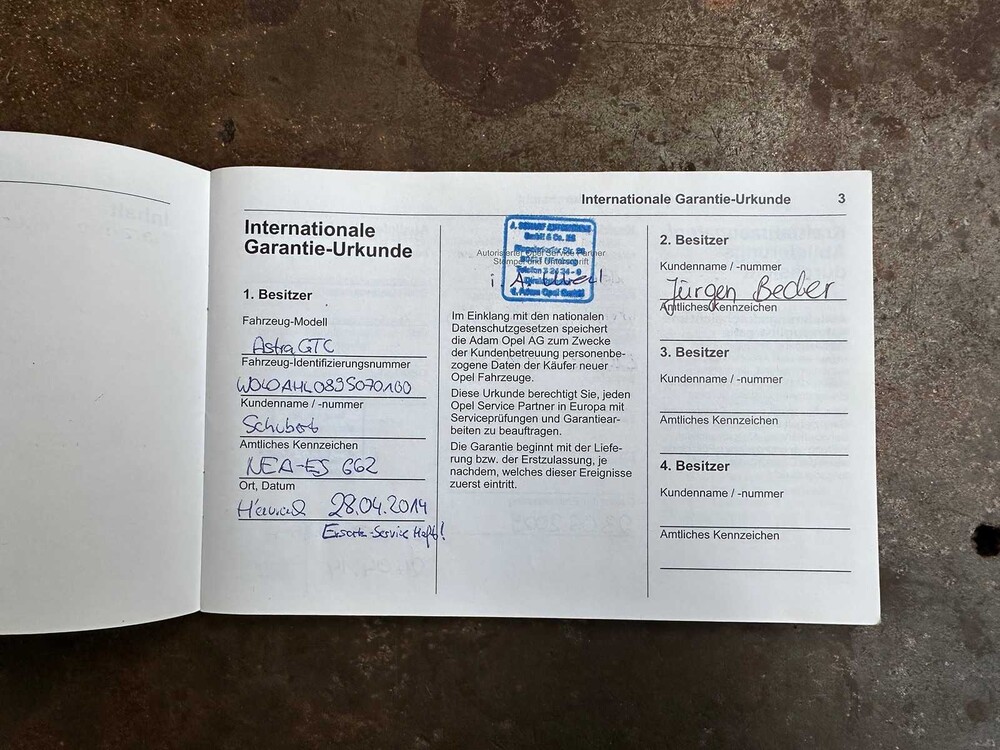 Internationale Garantie-Urkunde 3
Internationale
Garantie-Urkunde
1. Besitzer
Fahrzeug-Modell
Astra GTC
Fahrzeug-Identifizierungsnummer
W0L0AHL0895070100
Kundenname / -nummer
Amtliches Kennzeichen
NEA-ES 662
Ort, Datum
28.04.2014
Ersatz-Service Heft!
GmbH & Co. KG
Autorisierter Opel Service Partner
Stempel und Unterschrift
Im Einklang mit den nationalen
Datenschutzgesetzen speichert
die Adam Opel AG zum Zwecke
der Kundenbetreuung personenbe-
zogene Daten der Käufer neuer
Opel Fahrzeuge.
Diese Urkunde berechtigt Sie, jeden
Opel Service Partner in Europa mit
Serviceprüfungen und Garantiear-
beiten zu beauftragen.
Die Garantie beginnt mit der Liefe-
rung bzw. der Erstzulassung, je
nachdem, welches dieser Ereignisse
zuerst eintritt.
2. Besitzer
Kundenname / -nummer
Jürgen Becher
Amtliches Kennzeichen
3. Besitzer
Kundenname / -nummer
Amtliches Kennzeichen
4. Besitzer
Kundenname / -nummer
Amtliches Kennzeichen